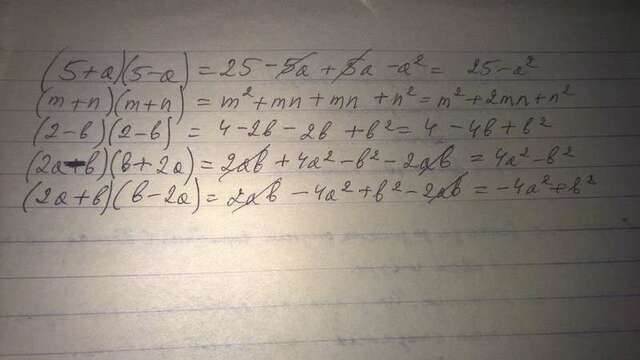 (5+a)(5-a) = 25 - 5a + 5a - a² = 25 - a²
(m+n)(m+n) = m² + mn + mn + n² = m² + 2mn + n²
(2-в)(2-в) = 4 - 2в - 2в + в² = 4 - 4в + в²
(2a-в)(в+2a) = 2aв + 4a² - в² - 2aв = 4a² - в²
(2a+в)(в-2a) = 2aв - 4a² + в² - 2aв = -4a² + в²